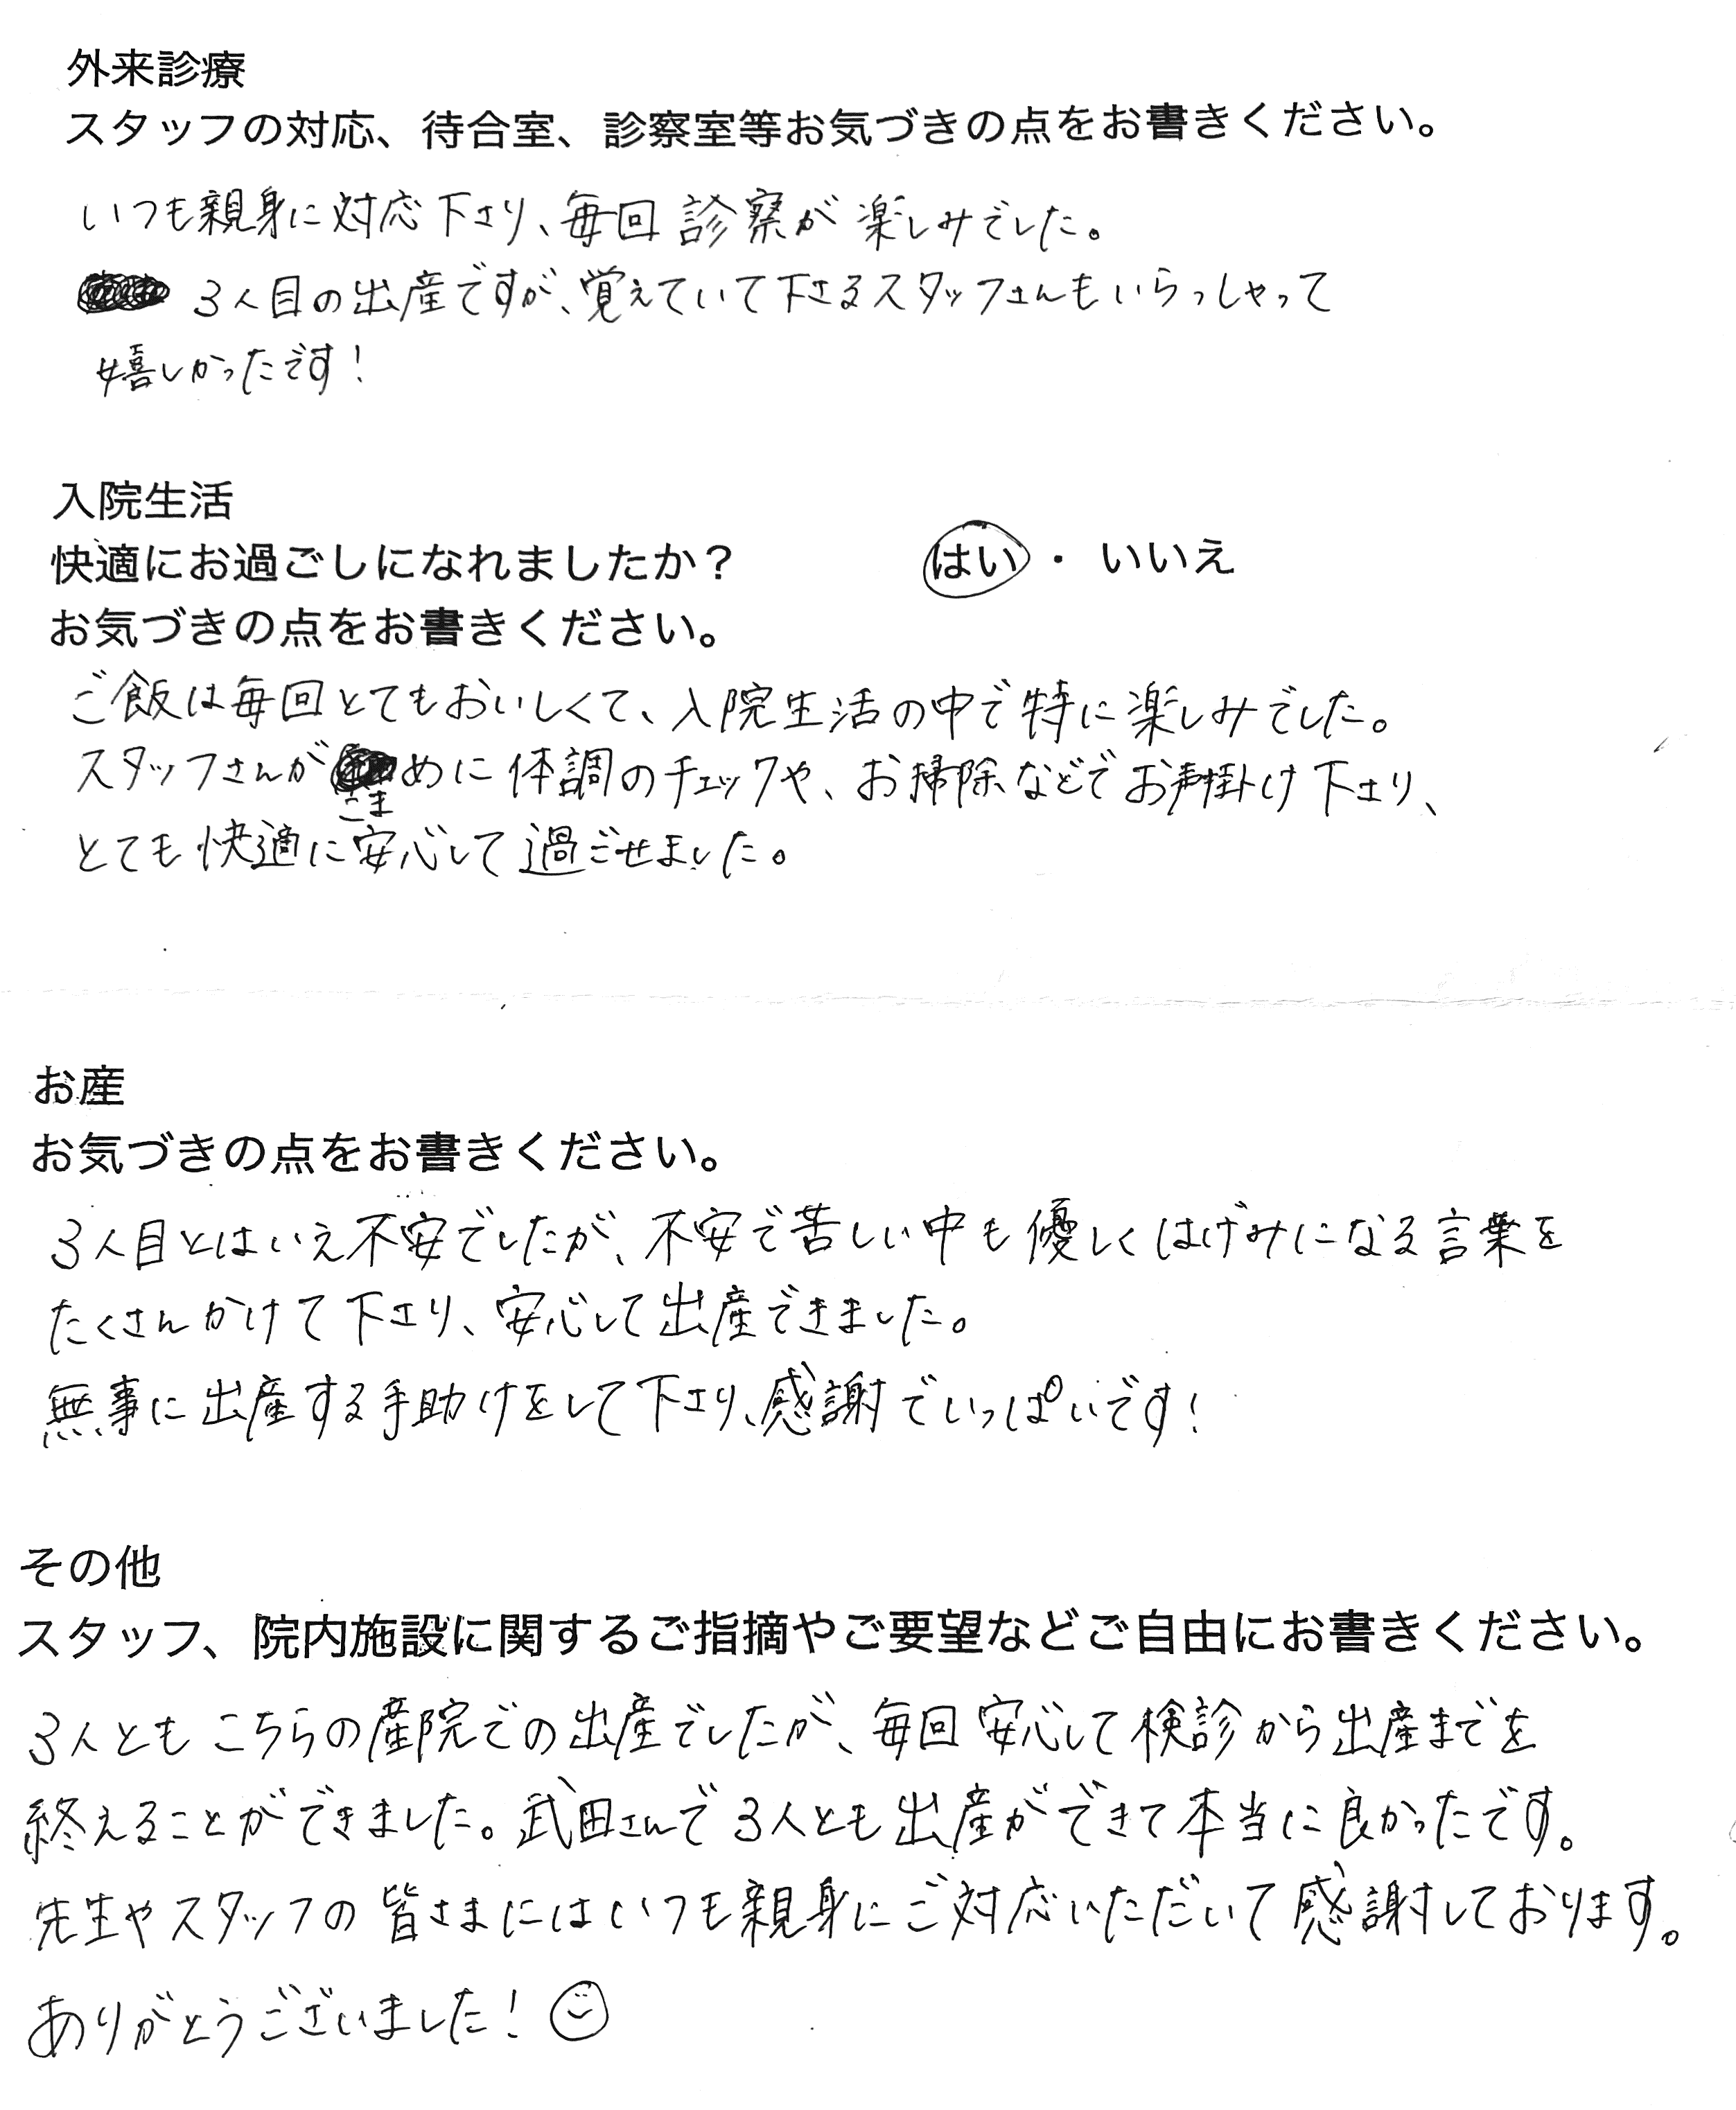 外来診療
スタッフの対応、待合室、診察室等お気づきの点をお書きください。
いつも親身に対応下さり、毎回 診察が 楽しみでした。
3人目の出産ですが、覚えていて下さるスタッフさんもいらっしゃって
嬉しかったです！
入院生活
快適にお過ごしになれましたか？ はい ・ いいえ
お気づきの点をお書きください。
ご飯は毎回とてもおいしくて、入院生活の中で特に楽しみでした。
スタッフさんがこまめに体調のチェックや、お掃除などでお声掛け下さり、
とても快適に安心して過ごせました。
お産
お気づきの点をお書きください。
3人目とはいえ不安でしたが、不安で苦しい中も優しくはげみになる言葉を
たくさんかけて下さり、安心して出産できました。
無事に出産する手助けをして下さり、感謝でいっぱいです！
その他
スタッフ、院内施設に関するご指摘やご要望などご自由にお書きください。
3人ともこちらの産院での出産でしたが、毎回安心して検診から出産までを
終えることができました。武田さんで3人とも出産ができて本当に良かったです。
先生やスタッフの皆さまにはいつも親身にご対応いただいて感謝しております。
ありがとうございました！